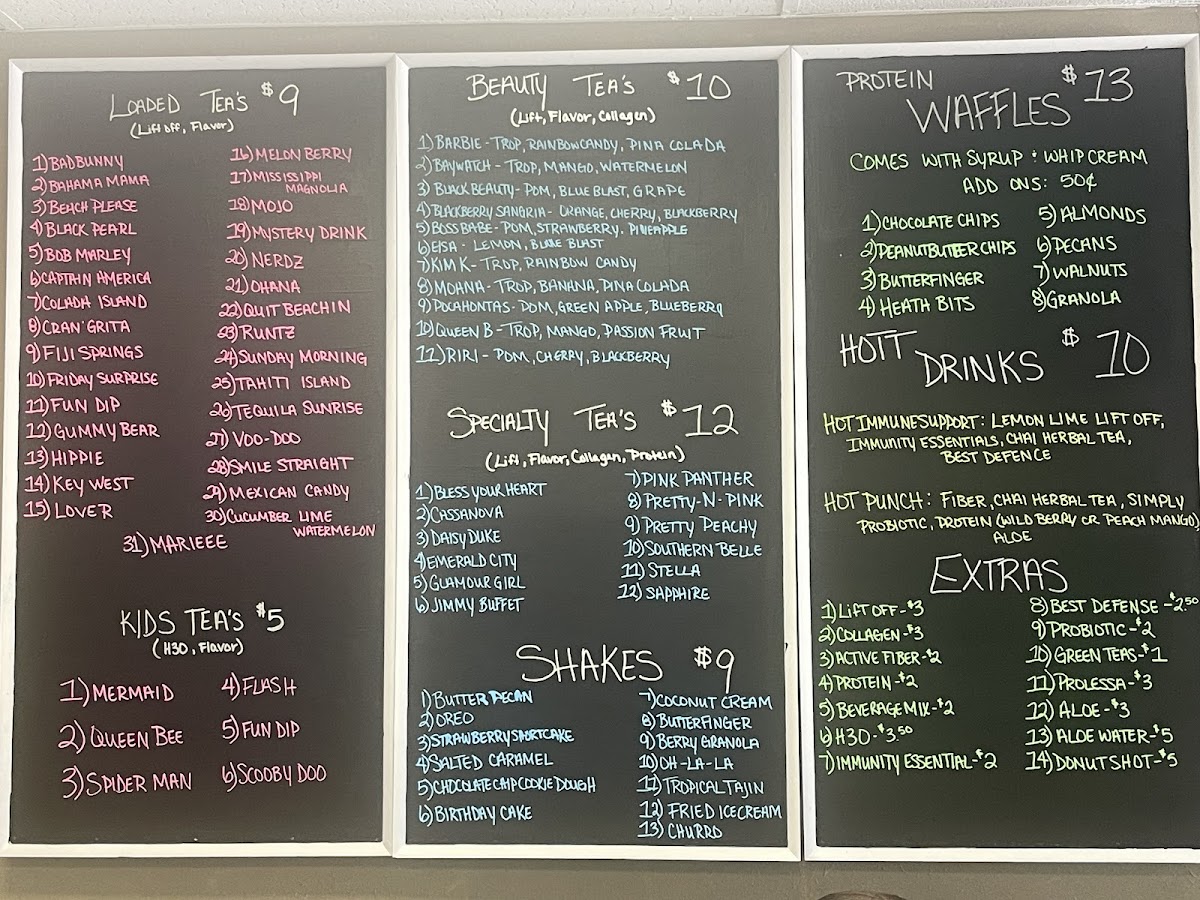 LOADED TEA'S $9
(Lift off, Flavor)
1) BADBUNNY
2) BAHAMA MAMA
3) BEACH PLEASE
4) BLACK PEARL
5) BOB MARLEY
6) CAPTAIN AMERICA
7) COLADA ISLAND
8) CRAN'GRITA
9) FIJI SPRINGS
10) FRIDAY SURPRISE
11) FUN DIP
12) GUMMY BEAR
13) HIPPIE
14) KEY WEST
15) LOVER
16) MELON BERRY
17) MISSISSIPPI
MAGNOLIA
18) MOJO
19) MYSTERY DRINK
20) NERDZ
21) OHANA
22) QUIT BEACHIN
23) RUNTZ
24) SUNDAY MORNING
25) TAHITI ISLAND
26) TEQUILA SUNRISE
27) VOO-DOO
28) SMILE STRAIGHT
29) MEXICAN CANDY
30) CUCUMBER LIME
WATERMELON
31) MARIEEE
KIDS TEA'S $5
(H3O, Flavor)
1) MERMAID
2) QUEEN BEE
3) SPIDER MAN
4) FLASH
5) FUN DIP
6) SCOOBY DOO
BEAUTY TEA'S $10
(Lift, Flavor, Collagen)
1) BARBIE - TROP, RAINBOW CANDY, PINA COLADA
2) BAYWATCH - TROP, MANGO, WATERMELON
3) BLACK BEAUTY - POM, BLUE BLAST, GRAPE
4) BLACKBERRY SANGRIA - ORANGE, CHERRY, BLACKBERRY
5) BOSS BABE - POM, STRAWBERRY, PINEAPPLE
6) ElSA - LEMON, BLUE BLAST
7) KIM K - TROP, RAINBOW CANDY
8) MOANA - TROP, BANANA, PINA COLADA
9) POCAHONTAS - POM, GREEN APPLE, BLUEBERRY
10) QUEEN B - TROP, MANGO, PASSION FRUIT
11) RIRI - POM, CHERRY, BLACKBERRY
SPECIALTY TEA'S $12
(Lift, Flavor, Collagen, Protein)
1) BLESS YOUR HEART
2) CASSANOVA
3) DAISY DUKE
4) EMERALD CITY
5) GLAMOUR GIRL
6) JIMMY BUFFET
7) PINK PANTHER
8) PRETTY-N-PINK
9) PRETTY PEACHY
10) SOUTHERN BELLE
11) STELLA
12) SAPPHIRE
SHAKES $9
1) BUTTER PECAN
2) OREO
3) STRAWBERRY SHORTCAKE
4) SALTED CARAMEL
5) CHOCOLATE CHIP COOKIE DOUGH
6) BIRTHDAY CAKE
7) COCONUT CREAM
8) BUTTERFINGER
9) BERRY GRANOLA
10) OH-LA-LA
11) TROPICAL TAJIN
12) FRIED ICECREAM
13) CHURRO
PROTEIN
WAFFLES $13
COMES WITH SYRUP & WHIP CREAM
ADD ONS: 50¢
1) CHOCOLATE CHIPS
2) PEANUTBUTTER CHIPS
3) BUTTERFINGER
4) HEATH BITS
5) ALMONDS
6) PECANS
7) WALNUTS
8) GRANOLA
HOTT DRINKS $10
HOT IMMUNE SUPPORT: LEMON LIME LIFT OFF,
IMMUNITY ESSENTIALS, CHAI HERBAL TEA,
BEST DEFENCE
HOT PUNCH: FIBER, CHAI HERBAL TEA, SIMPLY
PROBIOTIC, PROTEIN (WILD BERRY OR PEACH MANGO)
ALOE
EXTRAS
1) LIFT OFF - $3
2) COLLAGEN - $3
3) ACTIVE FIBER - $2
4) PROTEIN - $2
5) BEVERAGE MIX - $2
6) H3O - $3.50
7) IMMUNITY ESSENTIAL - $2
8) BEST DEFENSE - $2.50
9) PROBIOTIC - $2
10) GREEN TEAS - $1
11) PROLESSA - $3
12) ALOE - $3
13) ALOE WATER - $5
14) DONUT SHOT - $5